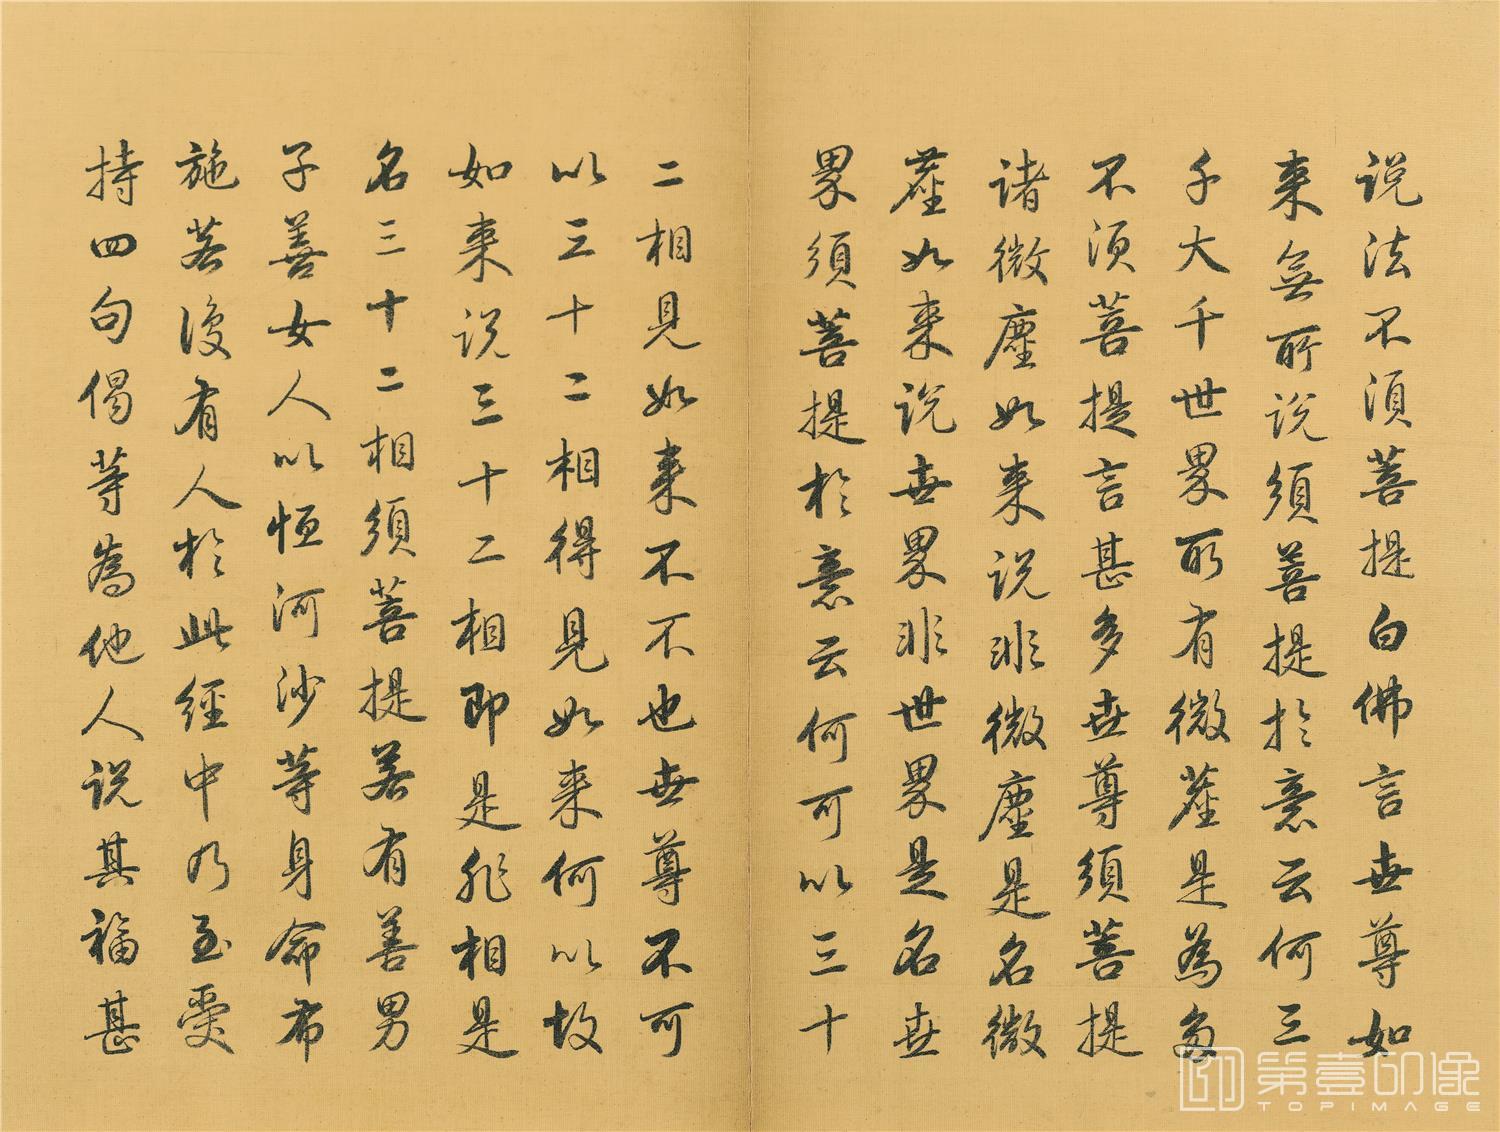 说法不須菩提白佛言世尊如
来無所说須菩提於意云何三
千大千世界所有微塵是為多
不須菩提言甚多世尊須菩提
诸微塵如来说非微塵是名微
塵如来说世界非世界是名世
界須菩提於意云何可以三十
二相見如来不不也世尊不可
以三十二相得見如来何以故
如来说三十二相即是非相是
名三十二相須菩提若有善男
子善女人以恒河沙等身命布
施若復有人於此經中乃至受
持四句偈等為他人说其福甚
第壹印像
TOPIMAGE